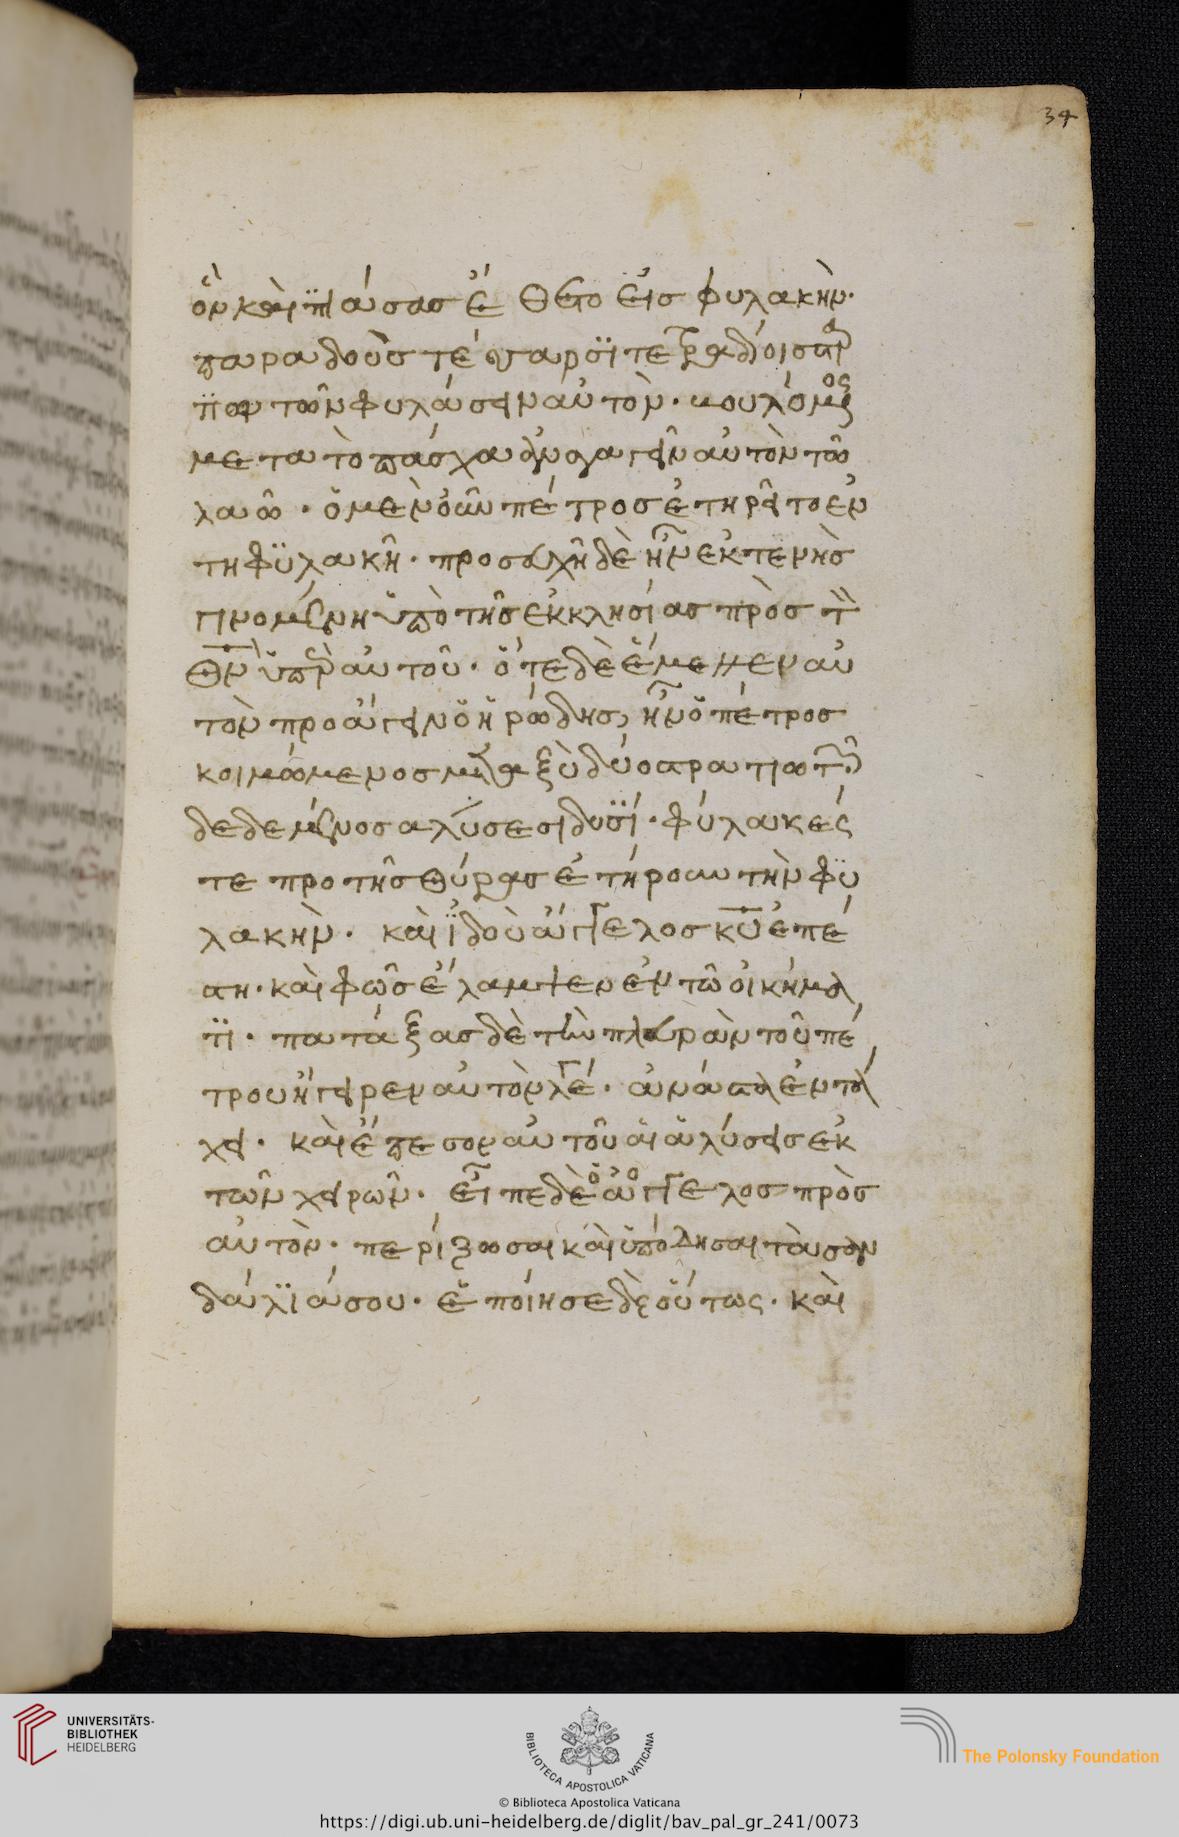 34
ὃν καὶ πϊάσας ἔθετο εἰς φυλακὴν·
παραδοὺς τέσσαρσϊ τετραδίοις στρα
τϊωτῶν φυλάσσειν αὐτὸν· βουλόμενος
μετα τὸ πάσχα ἀναγαγεῖν αὐτὸν τῶ
λαῶ· ὁ μὲν οὖν πέτρος ἐτηρεῖτο ἐν
τη φϋλακῆ· προσευχὴ δὲ ἦν ἐκτενὴς
γινομένη ὑπὸ τῆς ἐκκλησίας πρὸς τὸν
θν ὑπὲρ αὐτοῦ· ὅτε δὲ ἔμελλεν αὐ
τὸν προάγειν ὁ ἡρώδης, ἦν ὁ πέτρος
κοιμώμενος μεταξὺ δύο στρατιωτῶν
δεδεμένος αλύσεσι δυσϊ· φύλακές
τε προ τῆς θύρας ἐτήρουν τὴν φϋ
λακὴν· καὶ ϊδοὺ ἄγγελος κυ ἐπέ
στη· καὶ φῶς ἔλαμψεν ἐν τῶ οἰκήμα
τϊ· πατάξας δὲ τὴν πλευρὰν τοῦ πέ
τρου ἤγειρεν αὐτὸν λέγων· ἀνάστα ἐν τά
χει· καὶ ἔπεσον αὐτοῦ αἱ ἁλύσεις ἐκ
τῶν χειρῶν· εἶπε δὲ ὁ ἄγγελος πρὸς
αὐτὸν· περίζωσαι καὶ ὑπόδησαι τὰ σαν
δάλϊά σου· ἐποίησε δὲ οὕτως· καὶ
UNIVERSITÄTS-
BIBLIOTHEK
HEIDELBERG
BIBLIOTECA APOSTOLICA VATICANA
The Polonsky Foundation
© Biblioteca Apostolica Vaticana
https://digi.ub.uni-heidelberg.de/diglit/bav_pal_gr_241/0073